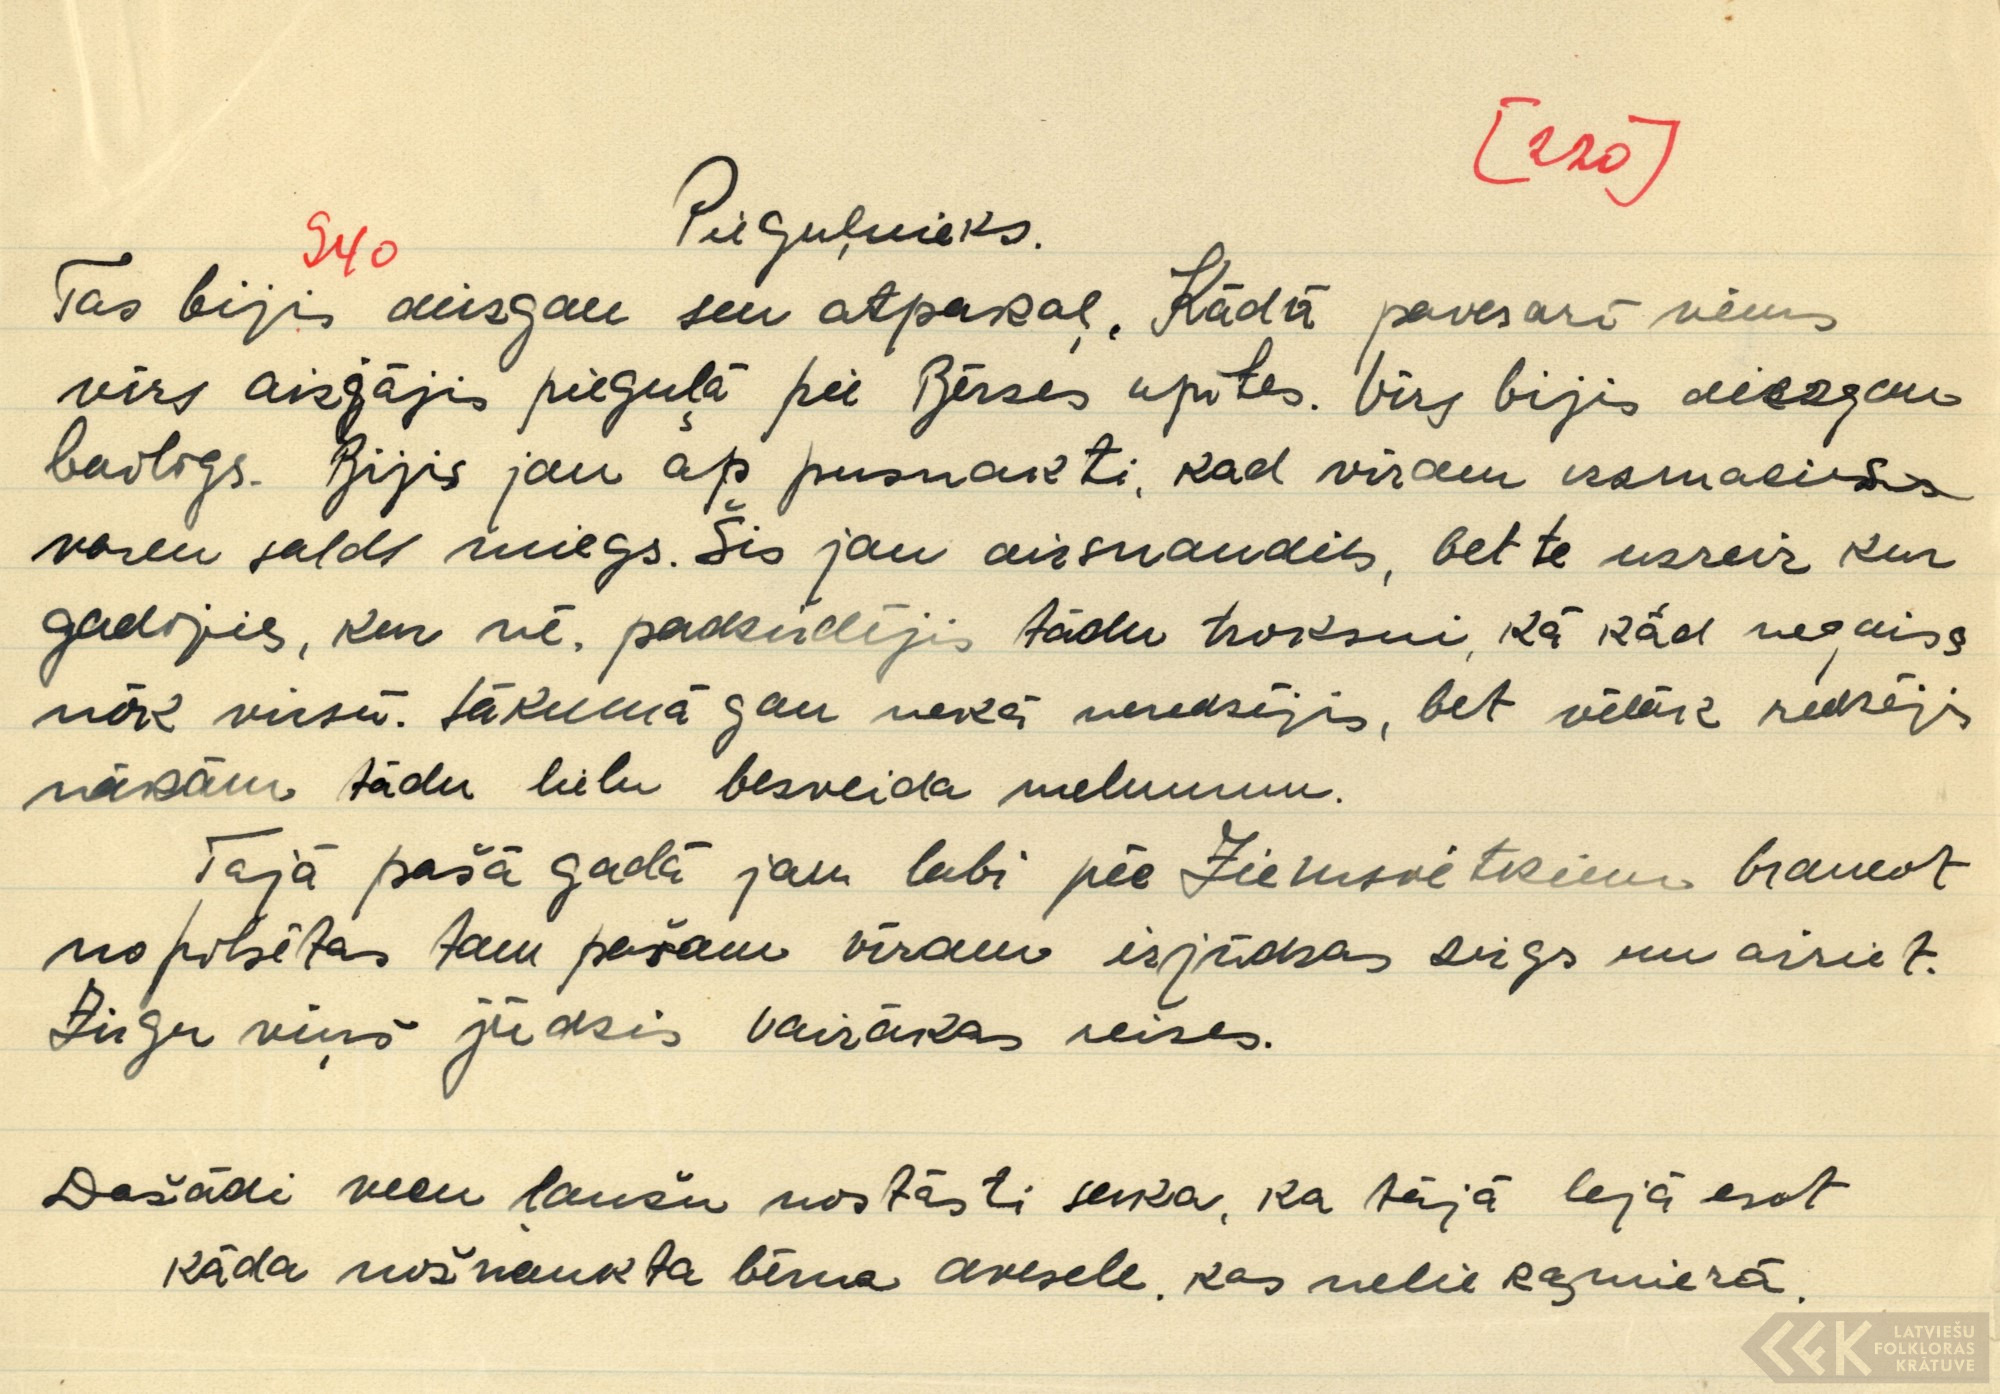 [220]
Pieguļnieks.
940
Tas bijis diezgan sen atpakaļ. Kādā pavasarī viens
vīrs aizgājis pieguļā pie Bērzes upītes. Vīrs bijis diezgan
bailīgs. Bijis jau ap pusnakti, kad vīram uzmācies
varen salds miegs. Šis jau aizsnaudies, bet te uzreiz kur
gadījies, kur nē, padzirdējis tādu troksni, kā kād negaiss
nāk virsū. Sākumā gan nekā neredzējis, bet vēlāk redzējis
nākām tādu lielu bezveida melnumu.
Tajā pašā gadā jau labi pēc Ziemsvētkiem braucot
no pilsētas tam pašam vīram izjūdzas zirgs un aizriet.
Zirgu viņš jūdzis vairākas reizes.
Dažādi vecu ļaužu nostāsti saka, ka tajā lejā esot
kāda nožņaukta bērna dvēsele, kas neliek mierā.
LATVIEŠU
FOLKLORAS
KRĀTUVE